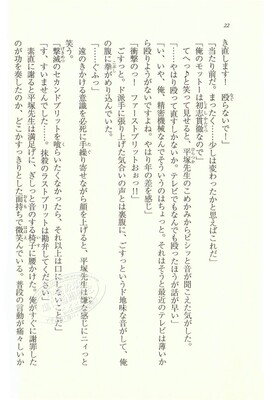 22
き直します! 殴らないで!」
「当たり前だ。まったく……少しは変わったかと思えばこれだ」
「俺のモットーは初志貫徹なので」
てへっ♪と笑って見せると、平塚先生のこめかみからピシッと音が聞こえた気がした。
「……やはり殴って直すしかないか。テレビでもなんでも殴ったほうが話が早い」
「い、いや、俺、精密機械なんでそういうのはちょっと。それはそうと最近のテレビは薄いから
殴りようがないですよね。やはり年の差を感じ」
「衝撃のっ! ファーストブリットおぉ!!」
ド派手に張り上げた気合いの声とは裏腹に、ごすっというド地味な音がして、俺の腹に拳が
「……ぐふっ」
遠のきかける意識を必死に手繰り寄せながら顔を上げると、平塚先生は嫌な感じにニィっと
笑う。
「撃滅のセカンドブリットを喰らいたくなかったら、それ以上は口にしないことだ」
「す、すいませんでした……。抹殺のラストブリットは勘弁してください」
素直に謝ると平塚先生は満足げに、ぎしっと音のする椅子に腰かけた。俺がすぐに謝罪した
のが功を奏したのか、どこかすっきりとした面持ちで微笑んでいる。普段の言動が痛々しいか